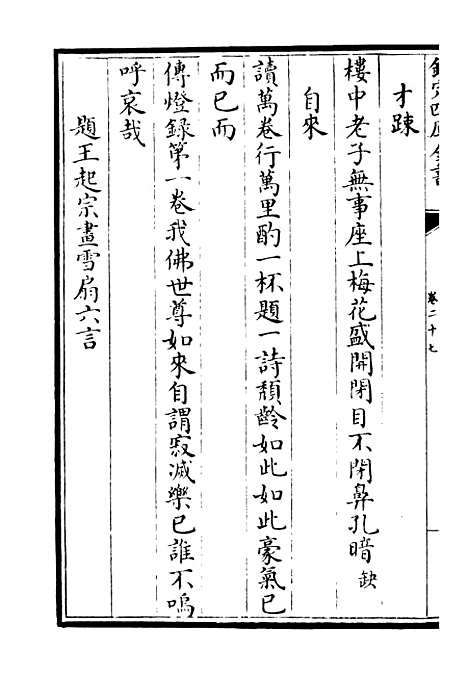 欽定四庫全書
卷二十七
才踈
樓中老子無事座上梅花盛開閉目不閉鼻孔暗缺
自來
讀萬卷行萬里酌一杯題一詩頽齡如此如此豪氣已
而已而
傳燈錄第一卷我佛世尊如來自謂寂滅樂已誰不嗚
呼哀哉
題王起宗畫雪扇六言